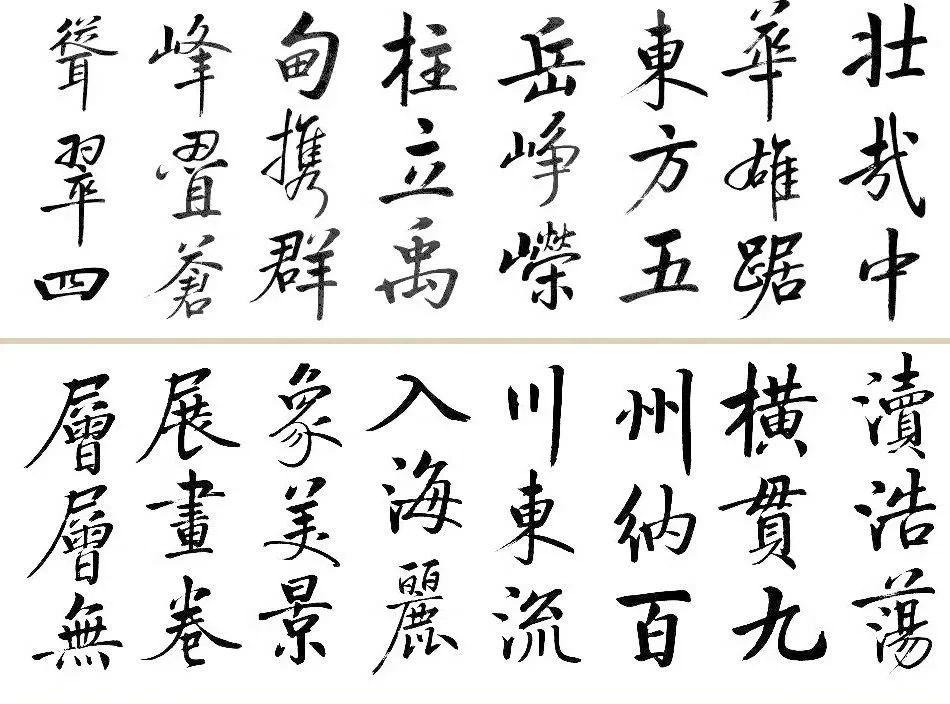 壯哉中
華雄踞
東方五
岳崢嶸
柱立禹
甸攜群
峰疊蒼
聳翠四
瀆浩蕩
橫貫九
州納百
川東流
入海麗
象美景
展畫卷
層層無